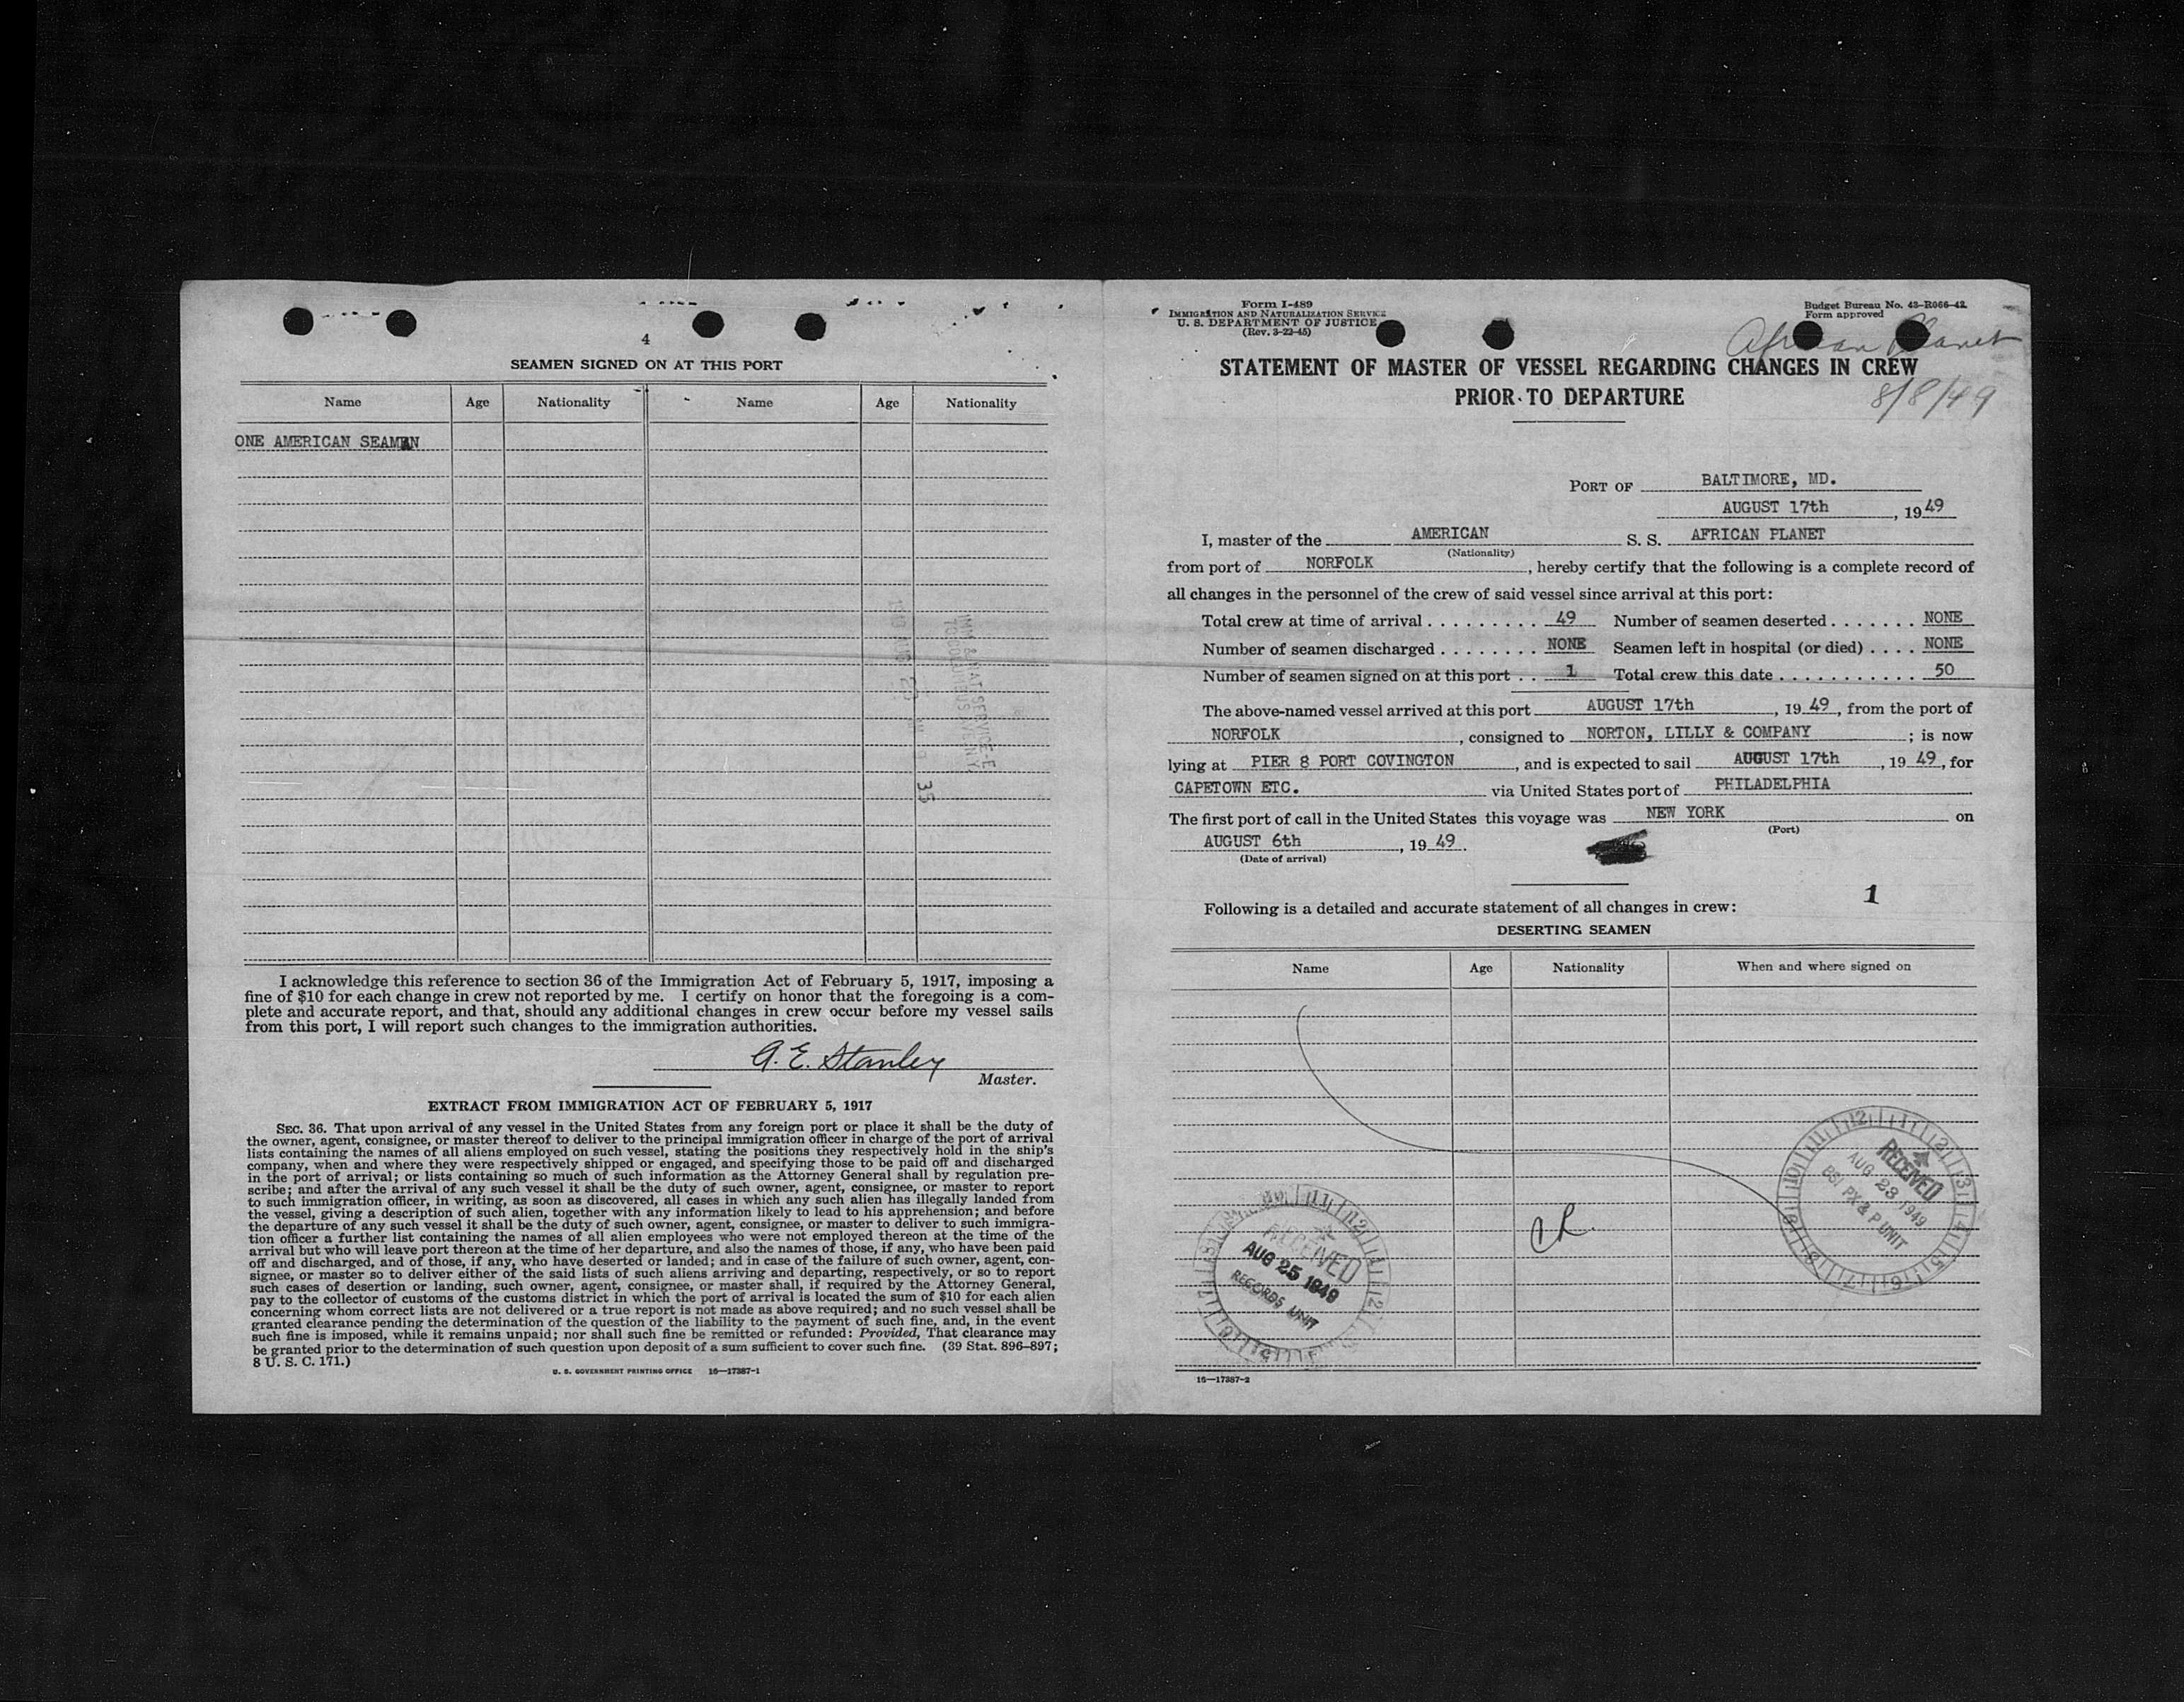 4
SEAMEN SIGNED ON AT THIS PORT
Name Age Nationality Name Age Nationality
ONE AMERICAN SEAMAN
35
I acknowledge this reference to section 36 of the Immigration Act of February 5, 1917, imposing a
fine of $10 for each change in crew not reported by me. I certify on honor that the foregoing is a com-
plete and accurate report, and that, should any additional changes in crew occur before my vessel sails
from this port, I will report such changes to the immigration authorities.
A. E. Stanley
Master.
EXTRACT FROM IMMIGRATION ACT OF FEBRUARY 5, 1917
SEC. 36. That upon arrival of any vessel in the United States from any foreign port or place it shall be the duty of
the owner, agent, consignee, or master thereof to deliver to the principal immigration officer in charge of the port of arrival
lists containing the names of all aliens employed on such vessel, stating the positions they respectively hold in the ship's
company, when and where they were respectively shipped or engaged, and specifying those to be paid off and discharged
in the port of arrival; or lists containing so much of such information as the Attorney General shall by regulation pre-
scribe; and after the arrival of any such vessel it shall be the duty of such owner, agent, consignee, or master to report
to such immigration officer, in writing, as soon as discovered, all cases in which any such alien has illegally landed from
the vessel, giving a description of such alien, together with any information likely to lead to his apprehension; and before
the departure of any such vessel it shall be the duty of such owner, agent, consignee, or master to deliver to such immigra-
tion officer a further list containing the names of all alien employees who were not employed thereon at the time of the
arrival but who will leave port thereon at the time of her departure, and also the names of those, if any, who have been paid
off and discharged, and of those, if any, who have deserted or landed; and in case of the failure of such owner, agent, con-
signee, or master so to deliver either of the said lists of such aliens arriving and departing, respectively, or so to report
such cases of desertion or landing, such owner, agent, consignee, or master shall, if required by the Attorney General,
pay to the collector of customs of the customs district in which the port of arrival is located the sum of $10 for each alien
concerning whom correct lists are not delivered or a true report is not made as above required; and no such vessel shall be
granted clearance pending the determination of the question of the liability to the payment of such fine, and, in the event
such fine is imposed, while it remains unpaid; nor shall such fine be remitted or refunded: Provided, That clearance may
be granted prior to the determination of such question upon deposit of a sum sufficient to cover such fine. (39 Stat. 896–897;
8 U. S. C. 171.)
U. S. GOVERNMENT PRINTING OFFICE 16—17387-1
Form I-489
IMMIGRATION AND NATURALIZATION SERVICE
U. S. DEPARTMENT OF JUSTICE
(Rev. 3-22-45)
Budget Bureau No. 43-R066-42.
Form approved
African Planet
STATEMENT OF MASTER OF VESSEL REGARDING CHANGES IN CREW
PRIOR TO DEPARTURE
8/8/49
PORT OF BALTIMORE, MD.
AUGUST 17th, 1949
I, master of the AMERICAN S. S. AFRICAN PLANET
(Nationality)
from port of NORFOLK, hereby certify that the following is a complete record of
all changes in the personnel of the crew of said vessel since arrival at this port:
Total crew at time of arrival . . . . . . . . . 49 Number of seamen deserted . . . . . . . NONE
Number of seamen discharged . . . . . . . . NONE Seamen left in hospital (or died) . . . . NONE
Number of seamen signed on at this port . . 1 Total crew this date . . . . . . . . . . . 50
The above-named vessel arrived at this port AUGUST 17th, 1949, from the port of
NORFOLK, consigned to NORTON, LILLY & COMPANY; is now
lying at PIER 8 PORT COVINGTON, and is expected to sail AUGUST 17th, 1949, for
CAPETOWN ETC. via United States port of PHILADELPHIA
The first port of call in the United States this voyage was NEW YORK on
(Port)
AUGUST 6th, 1949.
(Date of arrival)
1
Following is a detailed and accurate statement of all changes in crew:
DESERTING SEAMEN
Name Age Nationality When and where signed on
RECEIVED
AUG 23 1949
BSI PX & P UNIT
RECEIVED
AUG 25 1949
RECORDS UNIT
16—17387-2